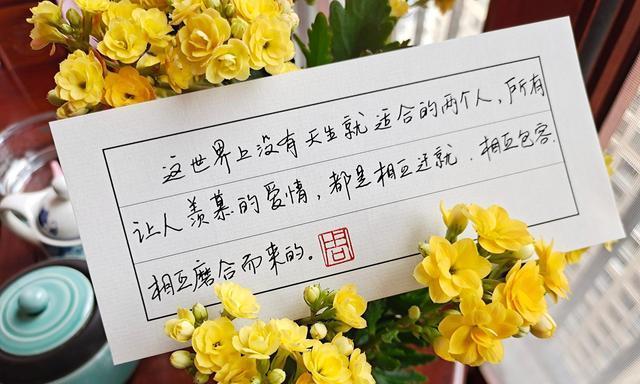 这世界上没有天生就适合的两个人，所有
让人羡慕的爱情，都是相互迁就、相互包容、
相互磨合而来的。